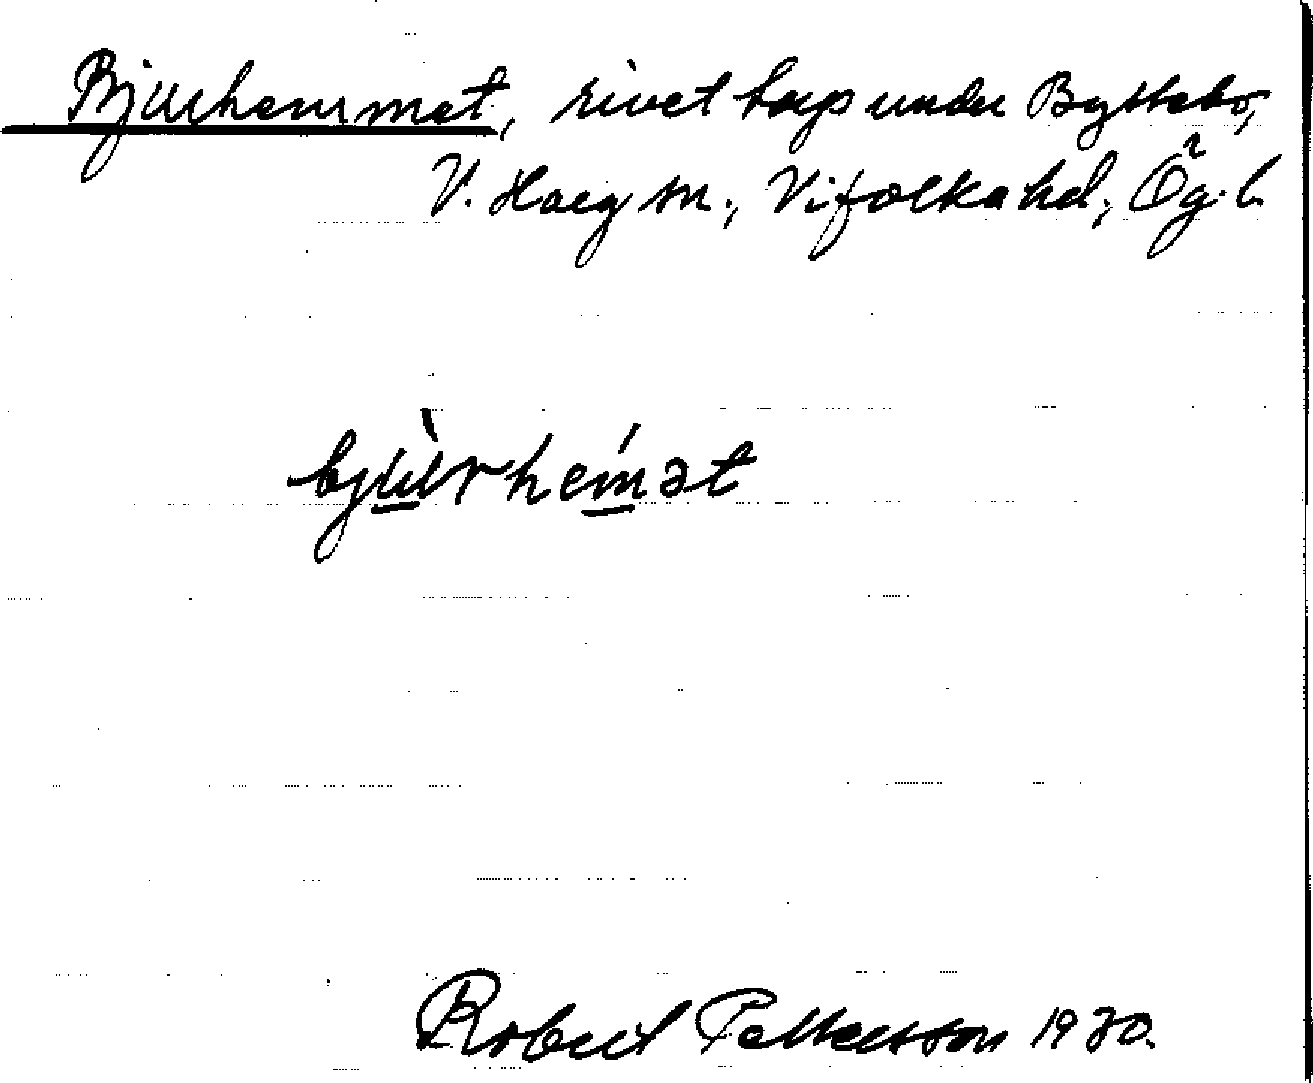 Bjurhemmet, rivet torp under Byttebo,
V. Harg sn., Vifolka hd, Ög. l.
bjùrhemət
Robert Pettersson 1930.